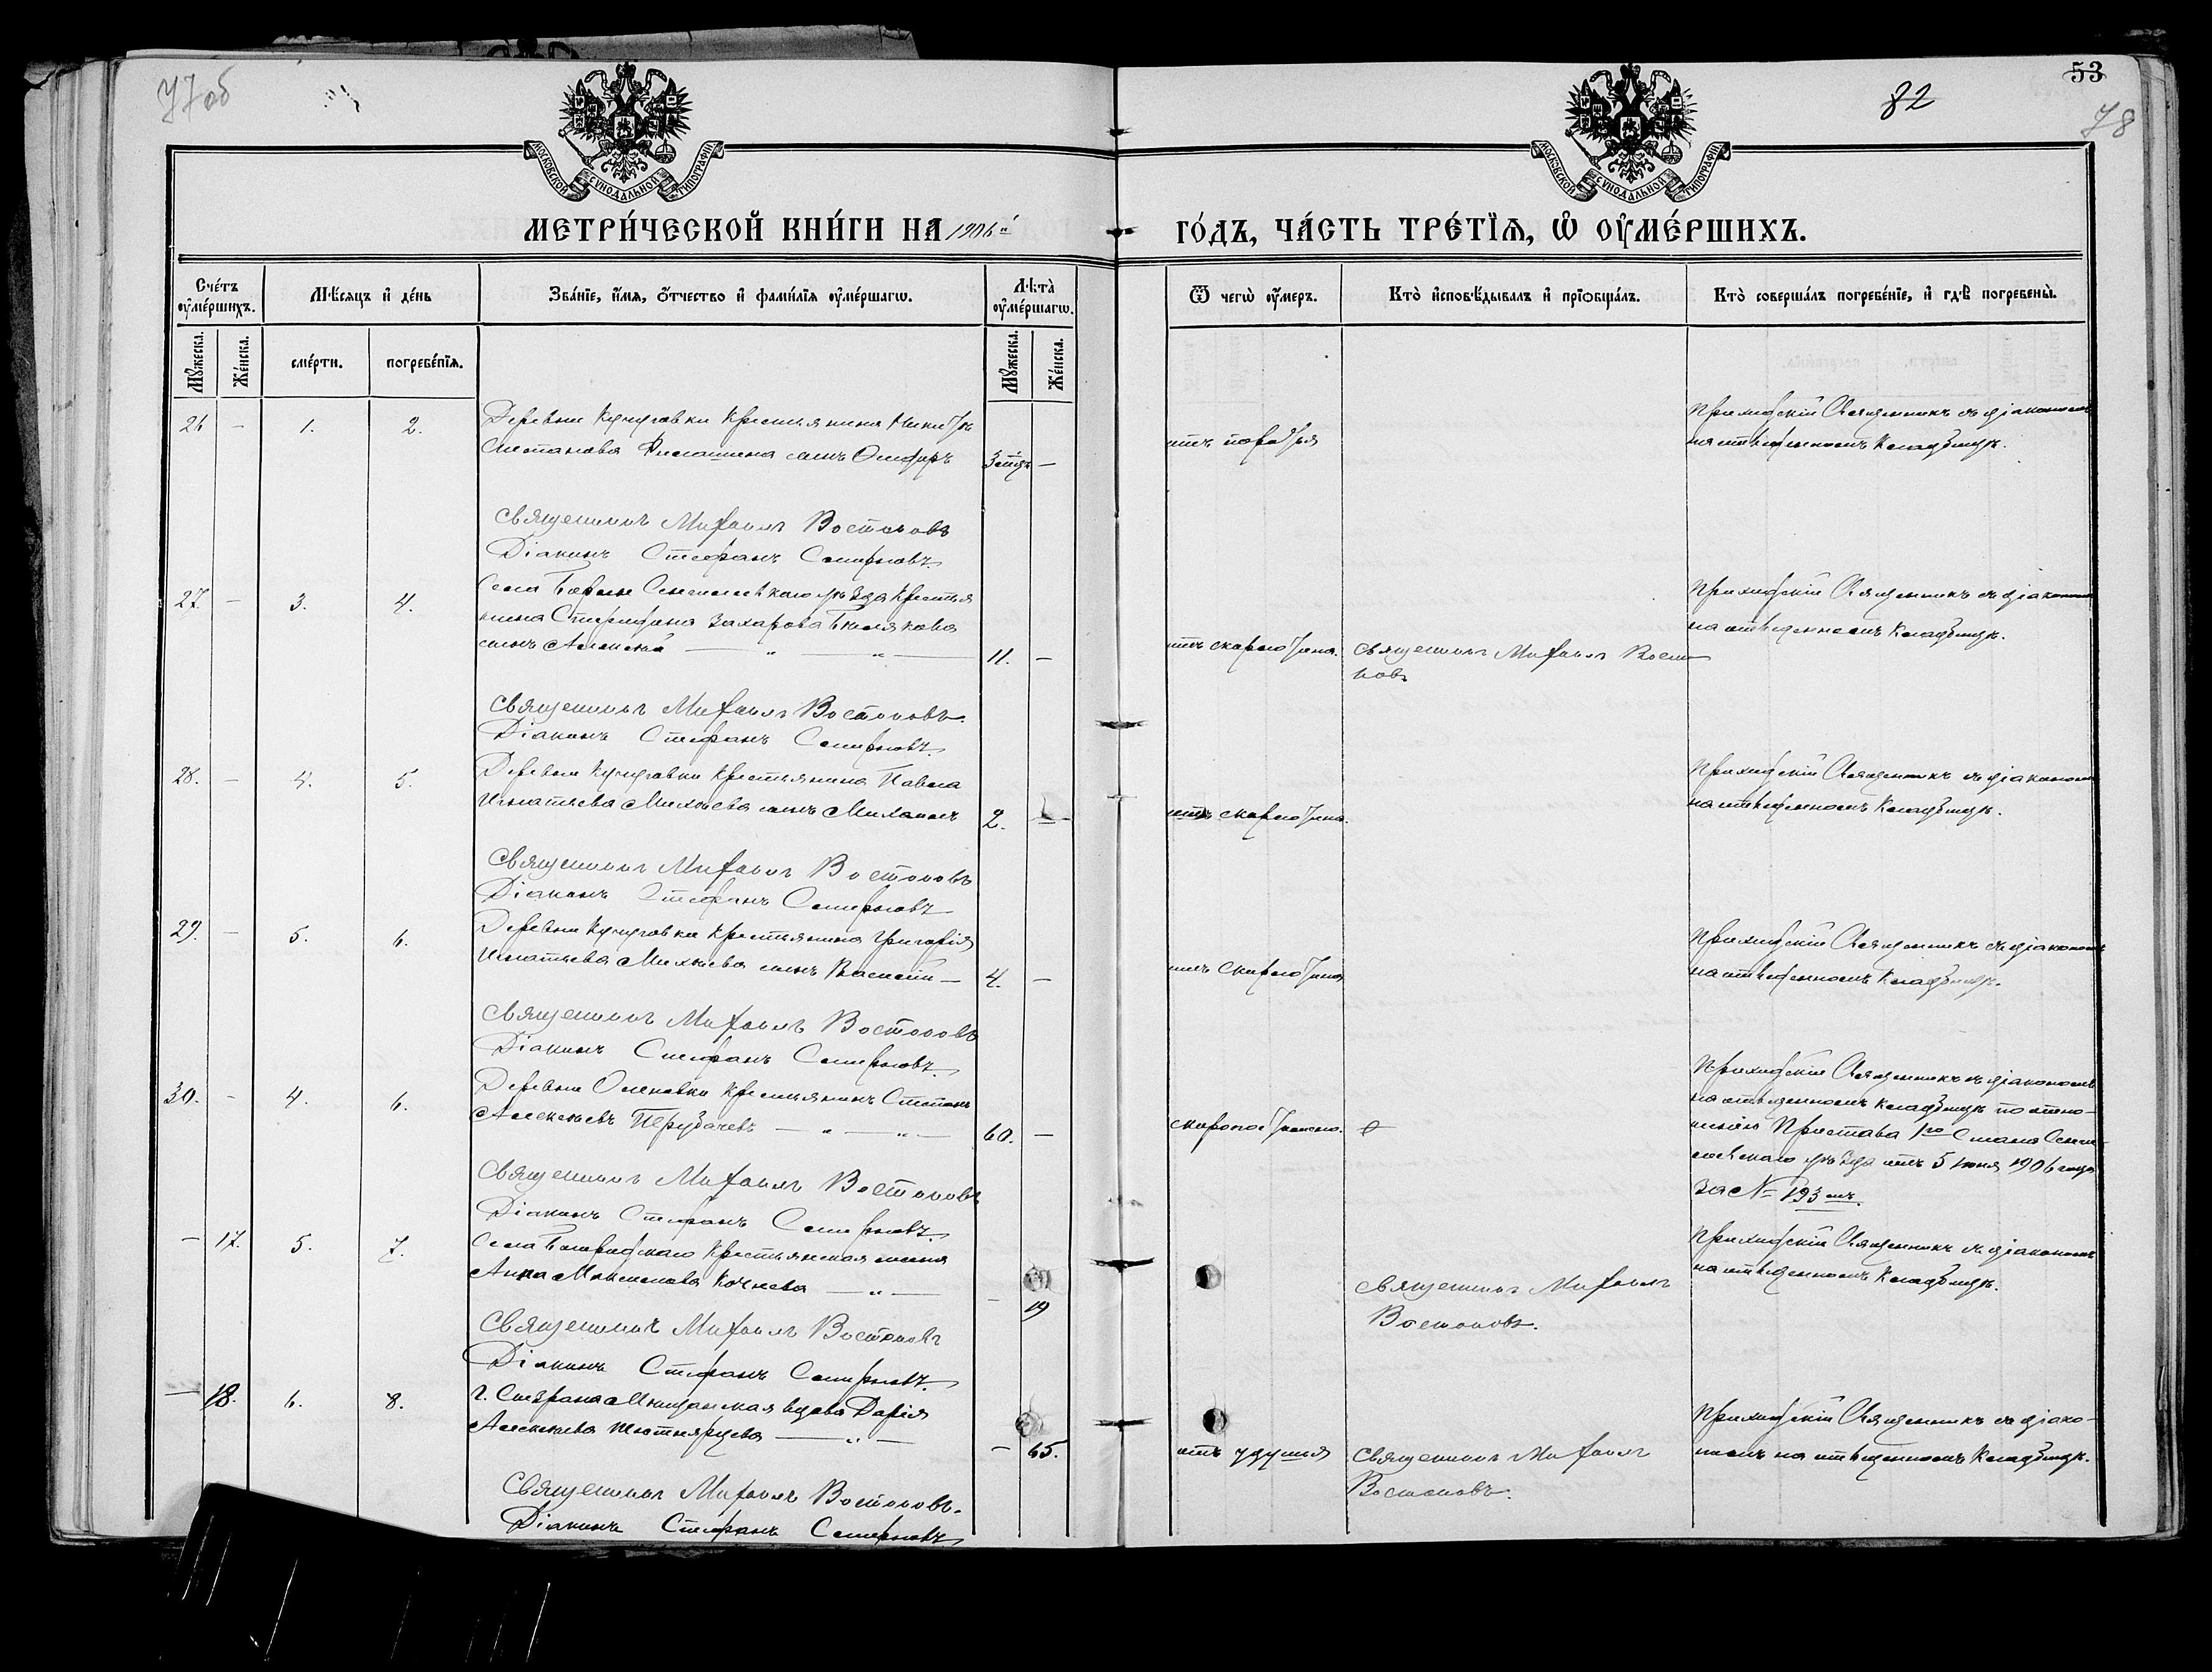 77об
82
53
78
МОСКОВСКОЙ СѴНОДАЛЬНОЙ ТИПОГРАФІИ
МОСКОВСКОЙ СѴНОДАЛЬНОЙ ТИПОГРАФІИ
МЕТРИ́ЧЕСКОЙ КНИ́ГИ НА 1906й
ГО́ДЪ, ЧА́СТЬ ТРЕ́ТЇѦ, Ѡ҆ ОУ҆МЕ́РШИХЪ.
Сче́тъ оу҆ме́ршихъ.
Мѣ́сѧцъ и҆ де́нь
Зва́нїе, и҆́мѧ, ѻ҆́тчество и҆ фами́лїѧ оу҆ме́ршагѡ.
Лѣ̀та̀ оу҆ме́ршагѡ.
Ѿ чегѡ̀ оу҆́меръ.
Кто̀ и҆сповѣ́дывалъ и҆ прїѡбща́лъ.
Кто̀ соверша́лъ погребе́нїе, и҆ гдѣ̀ погребены̀.
Мꙋ́жеска.
Же́нска.
сме́рти.
погребе́нїѧ.
Мꙋ́жеска.
Же́нска.
26 - 1. 2.
Деревни Кунуговки крестьянина Никиты
Степанова сынъ
-
Приходскій Священникъ съ діакономъ
на отведенномъ кладбищѣ.
Священникъ Михаилъ Востоковъ
Діаконъ Стефанъ Смирновъ.
27. - 3. 4.
Села Сенгилеевскаго уѣзда крестья
нина Захарова
сынъ Алексѣй — „ — „ — 11. -
отъ скарлотина.
Священникъ Михаилъ Восто
ковъ
Приходскій Священникъ съ діакономъ
на отведенномъ кладбищѣ.
Священникъ Михаилъ Востоковъ.
Діаконъ Стефанъ Смирновъ.
28. - 4. 5.
Деревни Кунуговки крестьянина Павла
Игнатьева Михѣева сынъ Михаилъ 2. -
отъ скарлотина.
Приходскій Священникъ съ діакономъ
на отведенномъ кладбищѣ.
Священникъ Михаилъ Востоковъ
Діаконъ Стефанъ Смирновъ
29. - 5. 6.
Деревни Кунуговки крестьянина Григорія
Игнатьева Михѣева сынъ Василій — 4. -
отъ скарлотина
Приходскій Священникъ съ діакономъ
на отведенномъ кладбищѣ.
Священникъ Михаилъ Востоковъ
Діаконъ Стефанъ Смирновъ.
30. - 4. 6.
Деревни крестьянинъ Степанъ
Алексѣевъ — „ — „ — 60. -
скоропостижно.
Приходскій Священникъ съ діакономъ
на отведенномъ кладбищѣ по отно-
шенію Пристава 1го Стана Сенги
леевскаго уѣзда отъ 5 Іюня 1906 года
за № 193 мъ.
Священникъ Михаилъ Востоковъ
Діаконъ Стефанъ Смирновъ.
— 17. 5. 7.
Села крестьянская жена
Анна Максимова — „ — - 19
Священникъ Михаилъ
Востоковъ.
Приходскій Священникъ съ діакономъ
на отведенномъ кладбищѣ.
Священникъ Михаилъ Востоковъ
Діаконъ Стефанъ Смирновъ.
— 18. 6. 8.
г. Сызрана Мѣщанская вдова Дарія
Алексѣева — „ — - 65.
отъ удушья
Священникъ Михаилъ
Востоковъ.
Приходскій Священникъ съ діако-
номъ на отведенномъ кладбищѣ.
Священникъ Михаилъ Востоковъ.
Діаконъ Стефанъ Смирновъ